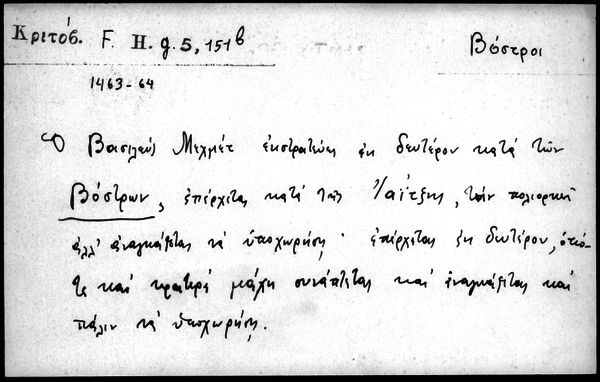 Κριτόβ. F. H. g. 5, 151b
Βόστροι
1463-64
Ὁ Βασιλεὺς Μεχμὲτ ἐκστρατεύσας ἐκ δευτέρου κατὰ τῶν
Βόστρων, ἐπέρχεται κατὰ τῆς Γιάϊτζης, τὴν πολιορκεῖ
ἀλλ' ἀναγκάζεται νὰ ὑποχωρήσῃ· ἐπέρχεται ἐκ δευτέρου, ὁπό-
τε καὶ κρατερὰ μάχη συνάπτεται καὶ ἀναγκάζεται καὶ
πάλιν νὰ ὑποχωρήσῃ.